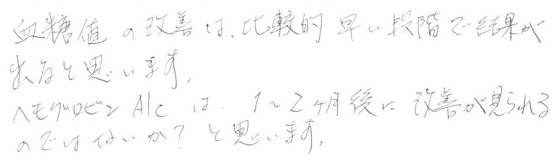 血糖値の改善は、比較的早い段階で結果が
出ると思います。
ヘモグロビンA1cは、1〜2ヶ月後に改善が見られる
のではないか?と思います。